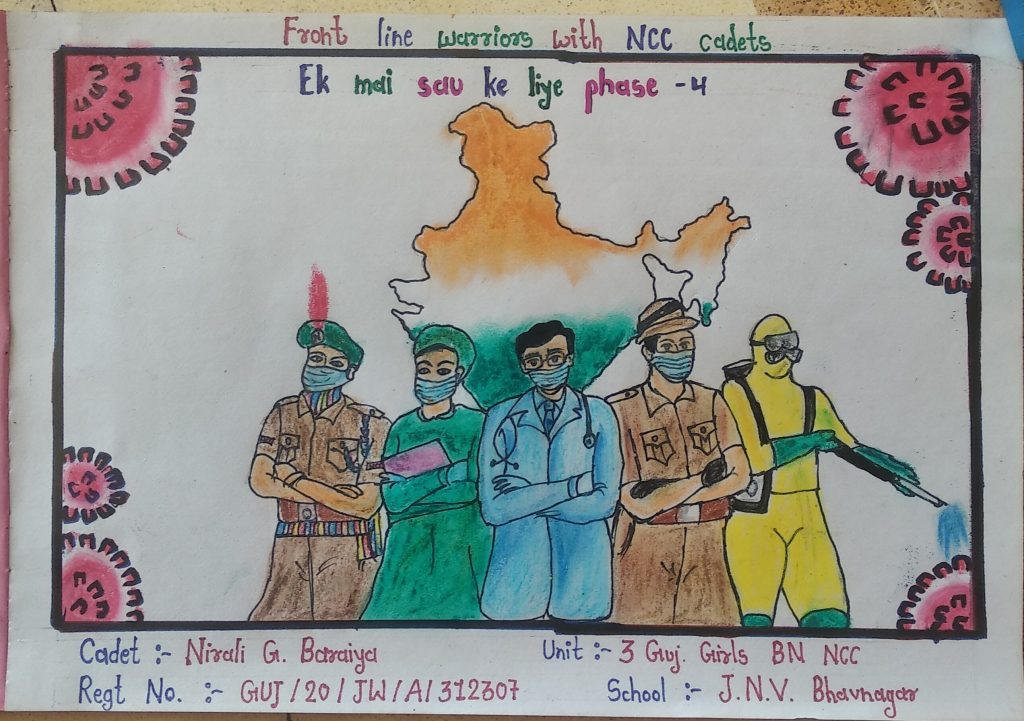 Front line warriors with NCC cadets
Ek mai sau ke liye phase -4
Cadet :- Nirali G. Baraiya
Unit :- 3 Guj. Girls BN NCC
Regt No. :- GUJ/20/JW/A/312307
School :- J.N.V. Bhavnagar